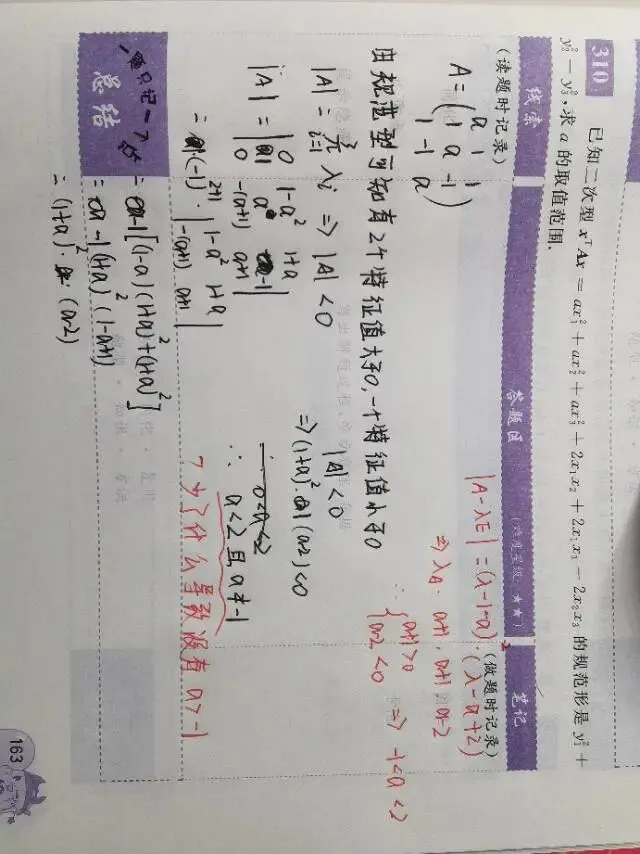 310 已知二次型 xᵀAx = ax₁² + ax₂² + ax₃² + 2x₁x₂ + 2x₁x₃ − 2x₂x₃ 的规范形是 y₁² +
y₂² − y₃², 求 a 的取值范围.
线索
答题区
笔记
(读题时记录)
(做题时记录)
A = ( a 1 1
1 a −1
1 −1 a )
由规范型可知有2个特征值大于0,一个特征值小于0
|A| = λᵢ ⇒ |A| < 0
|A| = | 0 1−a² 1+a
1 a −1
0 −(a+1) a+1 |
= (−1)²⁺¹ · | 1−a² 1+a
−(a+1) a+1 |
= −1[(1−a)(1+a)²+(1+a)²]
= −1(1+a)²(1−a+1)
= (1+a)² · (a−2)
|A| < 0
⇒ (1+a)² · (a−2) < 0
∴ a < 2 且 a ≠ −1
|A−λE| = (λ−1−a)² · (λ−a+2)
⇒ λA · a+1, a+1, a−2
∴ { a+1 > 0
a−2 < 0 ⇒ −1 < a < 2
少了什么导致没有 a > −1
总结
163